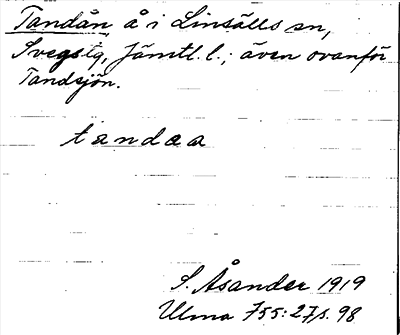 Tandån å i Linsälls sn,
Svegs tg, Jämtl. l.; även ovanför
Tandsjön.
tandaa
S. Åsander 1919
Ulma 755:27 s. 98